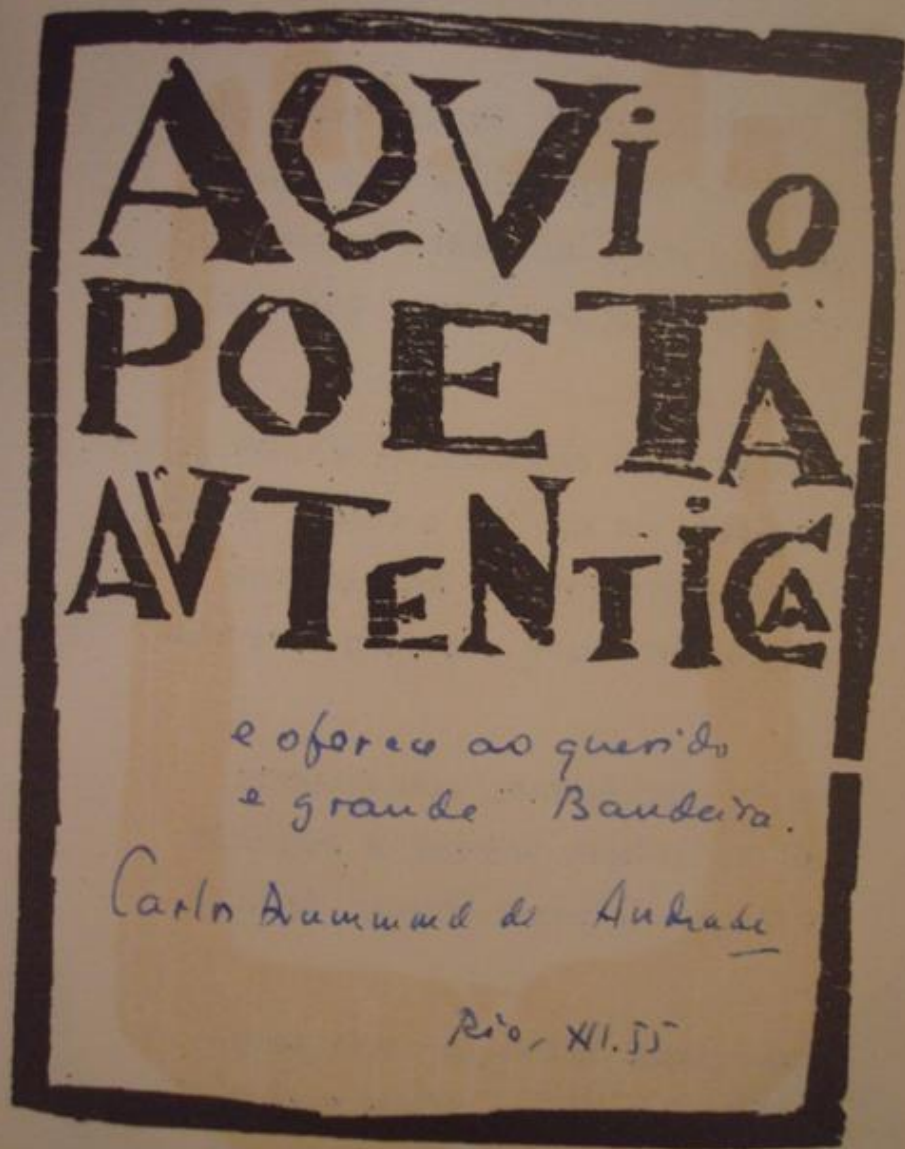 AQVi O
POETA
AVTENTiCA
e oferece ao querido
e grande Bandeira.
Carlos Drummond de Andrade
Rio, XII.55